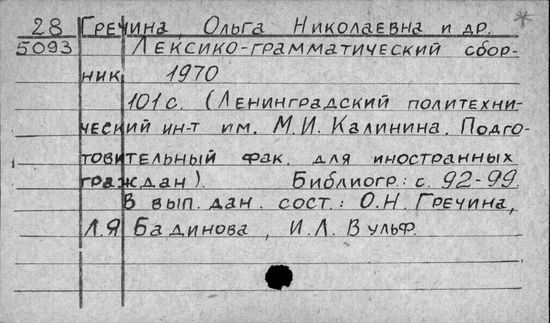 28 Гречина, Ольга Николаевна и др. *
5093 Лексико-грамматический сбор-
ник. 1970
101 с. (Ленинградский политехни-
ческий ин-т им. М.И. Калинина. Подго-
товительный фак. для иностранных
граждан). Библиогр.: с. 92-99.
В вып. дан. сост.: О.Н. Гречина,
Л.Я Бадинова, И.Л. Вульф.